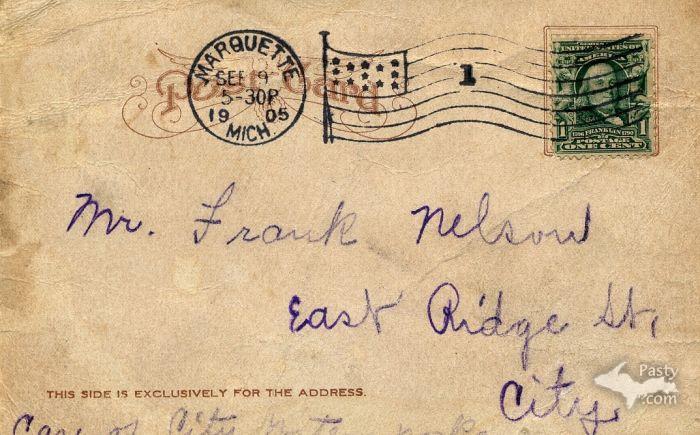 MARQUETTE
SEP 19
5-30P
19 05
MICH.
1
Post Card
SERIES 1902
UNITED STATES OF
AMERICA
1706 FRANKLIN 1790
1 POSTAGE 1
ONE CENT
Mr. Frank Nelson
East Ridge St,
City
THIS SIDE IS EXCLUSIVELY FOR THE ADDRESS.
Care of City
Pasty
.com